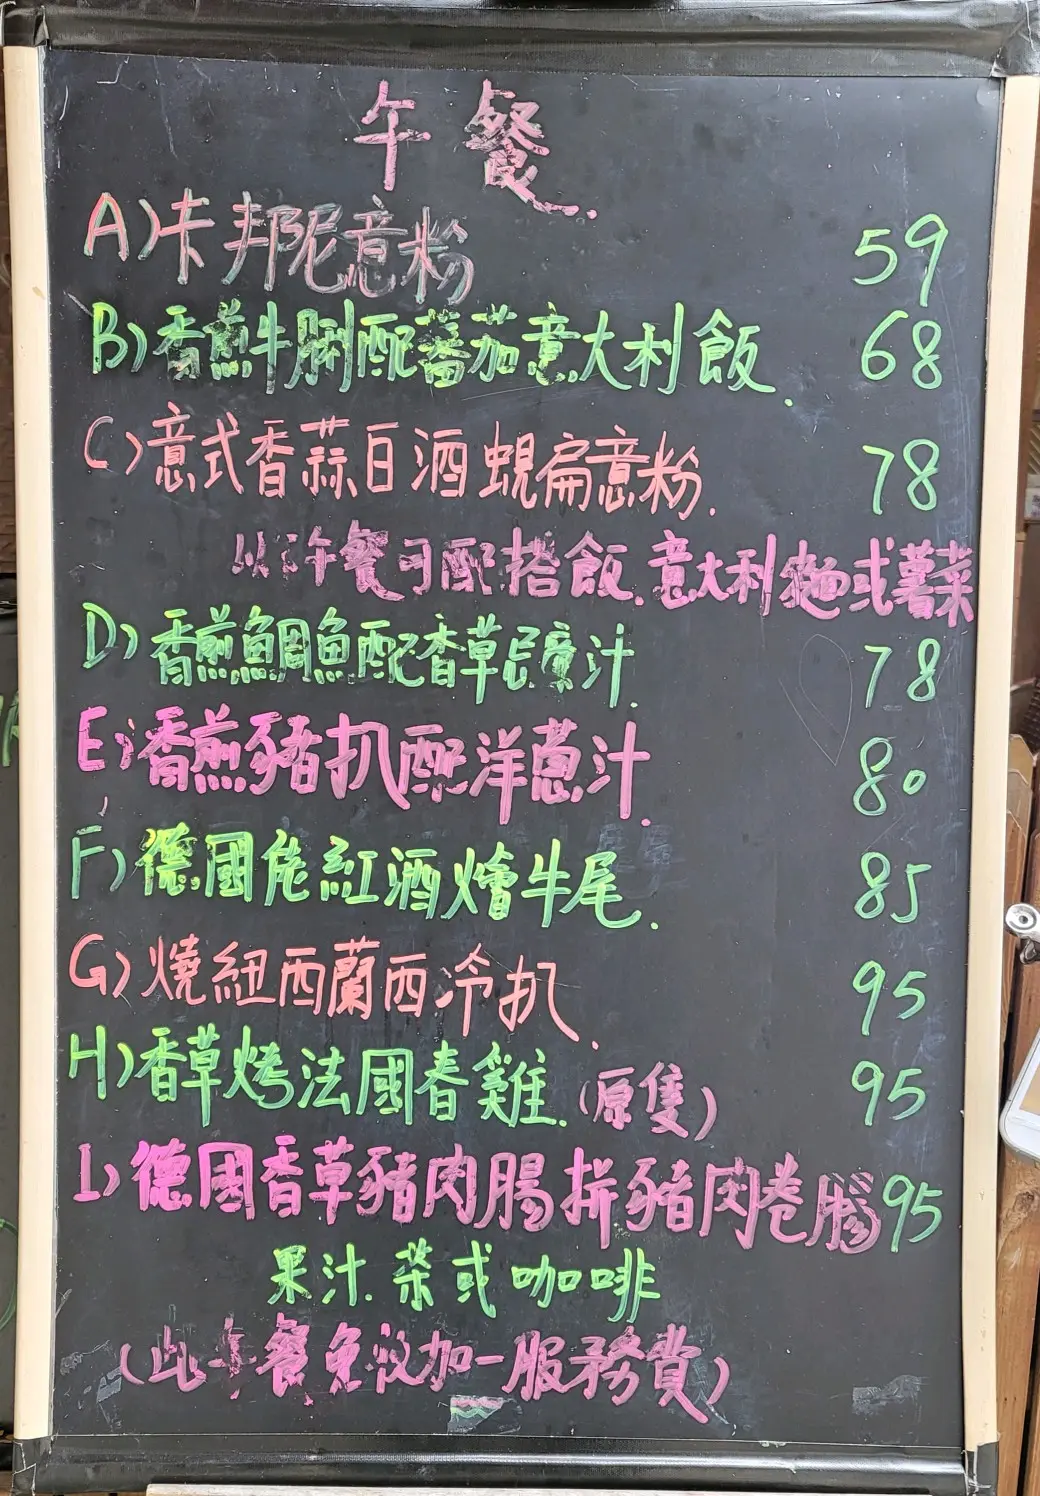 午餐
A) 卡邦尼意粉 59
B) 香煎牛脷配蕃茄意大利飯. 68
C) 意式香蒜白酒蜆扁意粉. 78
以下午餐可配搭飯.意大利麵或薯菜
D) 香煎鯛魚配香草忌廉汁. 78
E) 香煎豬扒配洋蔥汁. 80
F) 德國佬紅酒燴牛尾. 85
G) 燒紐西蘭西冷扒. 95
H) 香草烤法國春雞. (原隻) 95
I) 德國香草豬肉腸拼豬肉卷腸 95
果汁.茶或咖啡
(此午餐免收加一服務費)